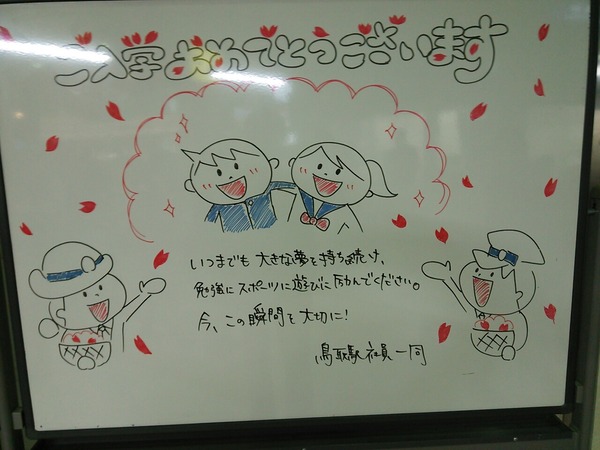 ご入学おめでとうございます
いつまでも大きな夢を持ち続け、
勉強にスポーツに遊びに励んでください。
今、この瞬間を大切に!
鳥取駅社員一同